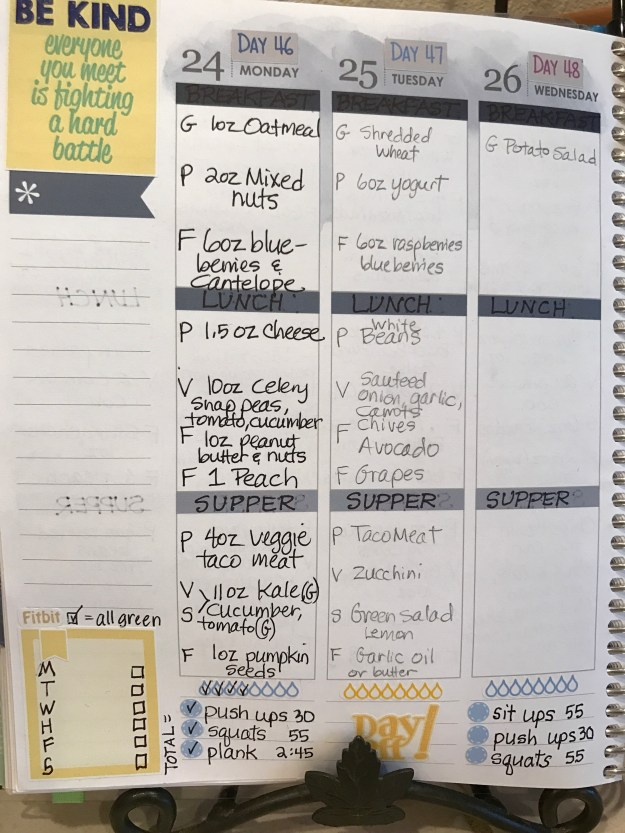 BE KIND
everyone
you meet
is fighting
a hard
battle
*
LUNCH
SUPPER
Fitbit ☑ = all green
M
T
W
H
F
S
DAY 46
24 MONDAY
BREAKFAST
G 1oz Oatmeal
P 2oz Mixed
nuts
F 6oz blue-
berries &
Cantelope
LUNCH:
P 1.5 oz cheese
V 10oz Celery
Snap peas,
tomato, cucumber
F 1oz peanut
butter & nuts
F 1 Peach
SUPPER
P 4oz veggie
taco meat
V 11oz Kale (G)
S Cucumber,
tomato (G)
F 1oz pumpkin
seeds
TOTAL =
push ups 30
squats 55
plank 2:45
DAY 47
25 TUESDAY
BREAKFAST
G Shredded
Wheat
P 6oz yogurt
F 6oz raspberries
blueberries
LUNCH:
P White
Beans
V Sauteed
onion, garlic,
Carrots
Chives
F Avocado
F Grapes
SUPPER
P Taco Meat
V Zucchini
S Green Salad
Lemon
F Garlic oil
or butter
Day
off!
DAY 48
26 WEDNESDAY
BREAKFAST
G Potato Salad
LUNCH:
SUPPER
sit ups 55
push ups 30
squats 55